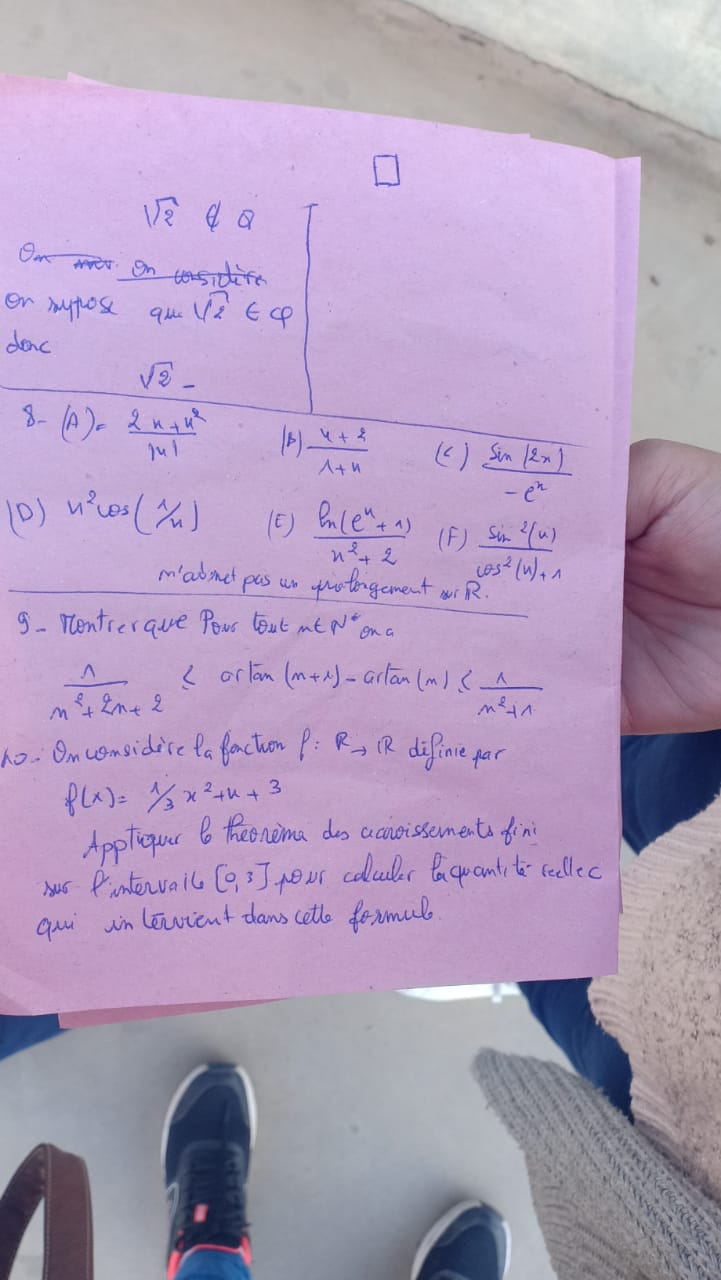 √2 ∉ Q
On avec On considère
on suppose que √2 ∈ Q
donc
√2 -
8- (A)= (2x+x²)/|x| (B) (x+2)/(1+x) (C) sin(2x)/(-eˣ)
(D) x²cos(1/x) (E) ln(eˣ+1)/(x²+2) (F) sin²(x)/(cos²(x)+1)
n'admet pas un prolongement sur R.
9- Montrer que Pour tout n∈N* on a
1/(n²+2n+2) ≤ artan(n+1)-artan(n) ≤ 1/(n²+1)
10- On considère la fonction f: R→R définie par
f(x)= 1/3 x²+x+3
Appliquer le théorèma des accroissements fini
sur l'intervalle [0,3] pour calculer la quantité réelle c
qui intervient dans cette formule.